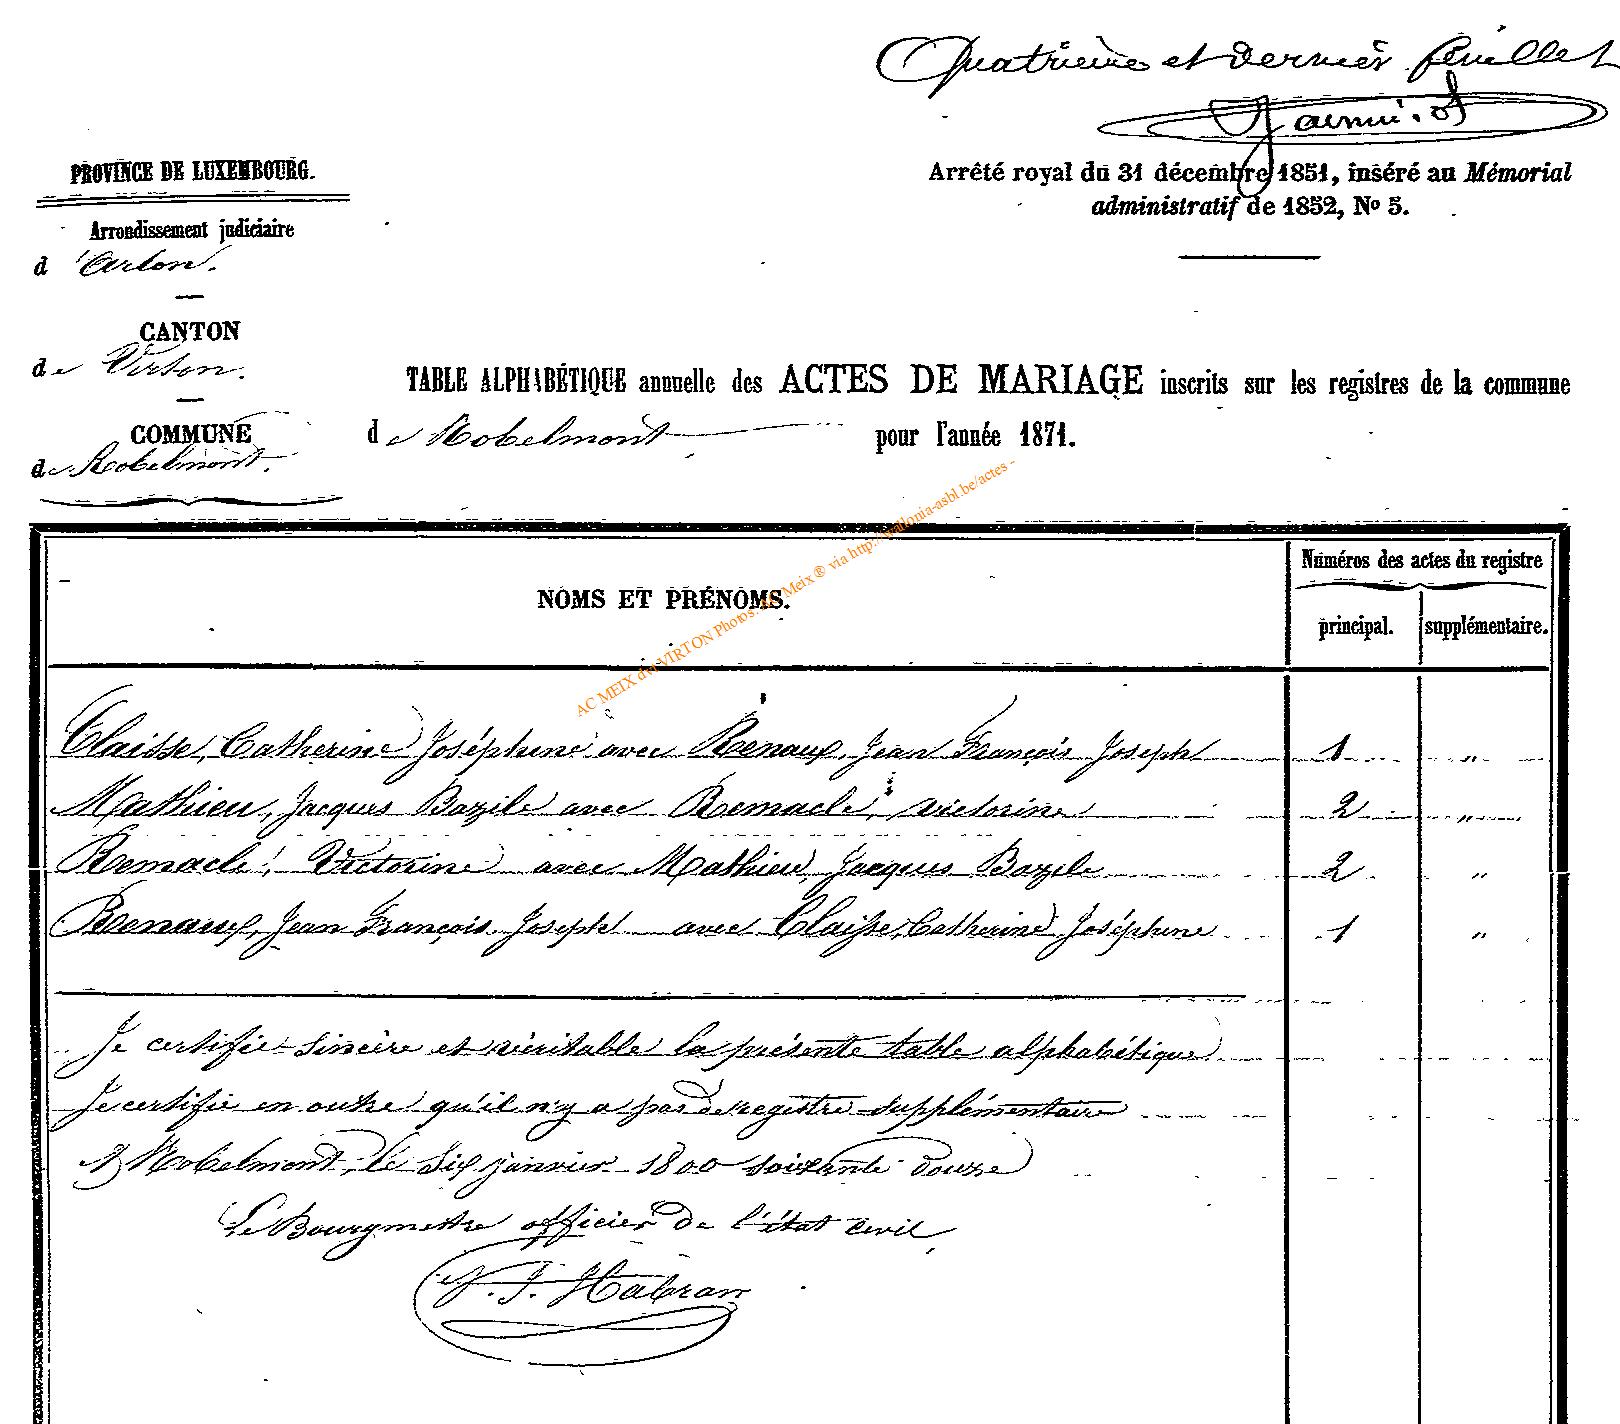 Quatrième et dernier feuillet
PROVINCE DE LUXEMBOURG.
Arrêté royal du 31 décembre 1851, inséré au Mémorial
administratif de 1852, No 5.
Arrondissement judiciaire
d'Arlon.
CANTON
de Virton.
TABLE ALPHABÉTIQUE annuelle des ACTES DE MARIAGE inscrits sur les registres de la commune
COMMUNE
de Robelmont pour l'année 1871.
de Robelmont.
AC MEIX dvt VIRTON Photos: Meix ® via http://wallonia-asbl.be/actes -
Numéros des actes du registre
NOMS ET PRÉNOMS.
principal. supplémentaire.
Claisse, Catherine Joséphine avec Renaux, Jean François Joseph 1 "
Mathieu, Jacques Bazile avec Remacle, Victorine 2 "
Remacle, Victorine avec Mathieu, Jacques Bazile 2 "
Renaux, Jean François Joseph avec Claisse, Catherine Joséphine 1 "
Je certifie sincère et véritable la présente table alphabétique
Je certifie en outre qu'il n'y a pas de registre supplémentaire
A Robelmont, le six janvier 1800 soixante douze
Le Bourgmestre officier de l'état civil,
N. J. Habran